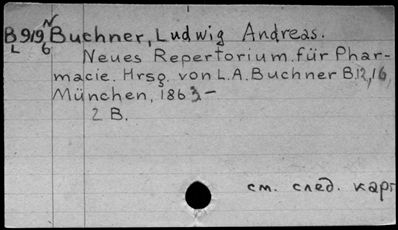 B 919 N Buchner, Ludwig Andreas.
L 6
Neues Repertorium für Phar-
macie. Hrsg. von L.A. Buchner B.12,16,
München, 1863-
2 B.
см. след. карт